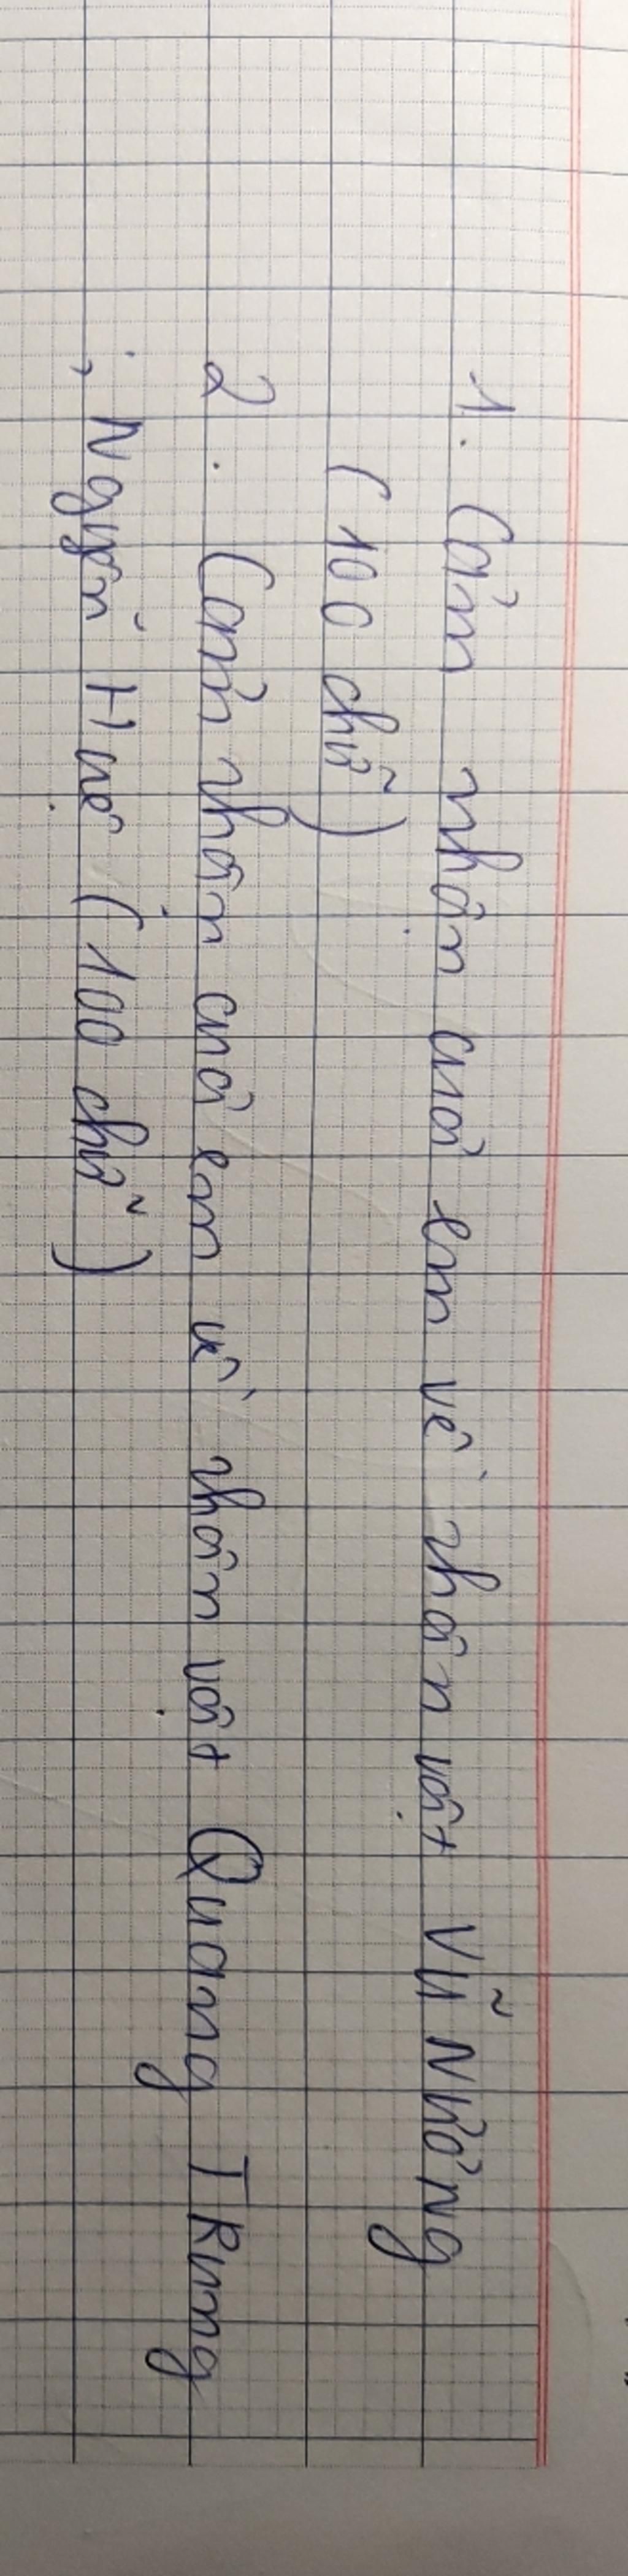 1. Cảm nhận của em về nhân vật Vũ Nương
( 100 chữ )
2. Cảm nhận của em về nhân vật Quang TRung
, Nguyễn Huệ ( 100 chữ )